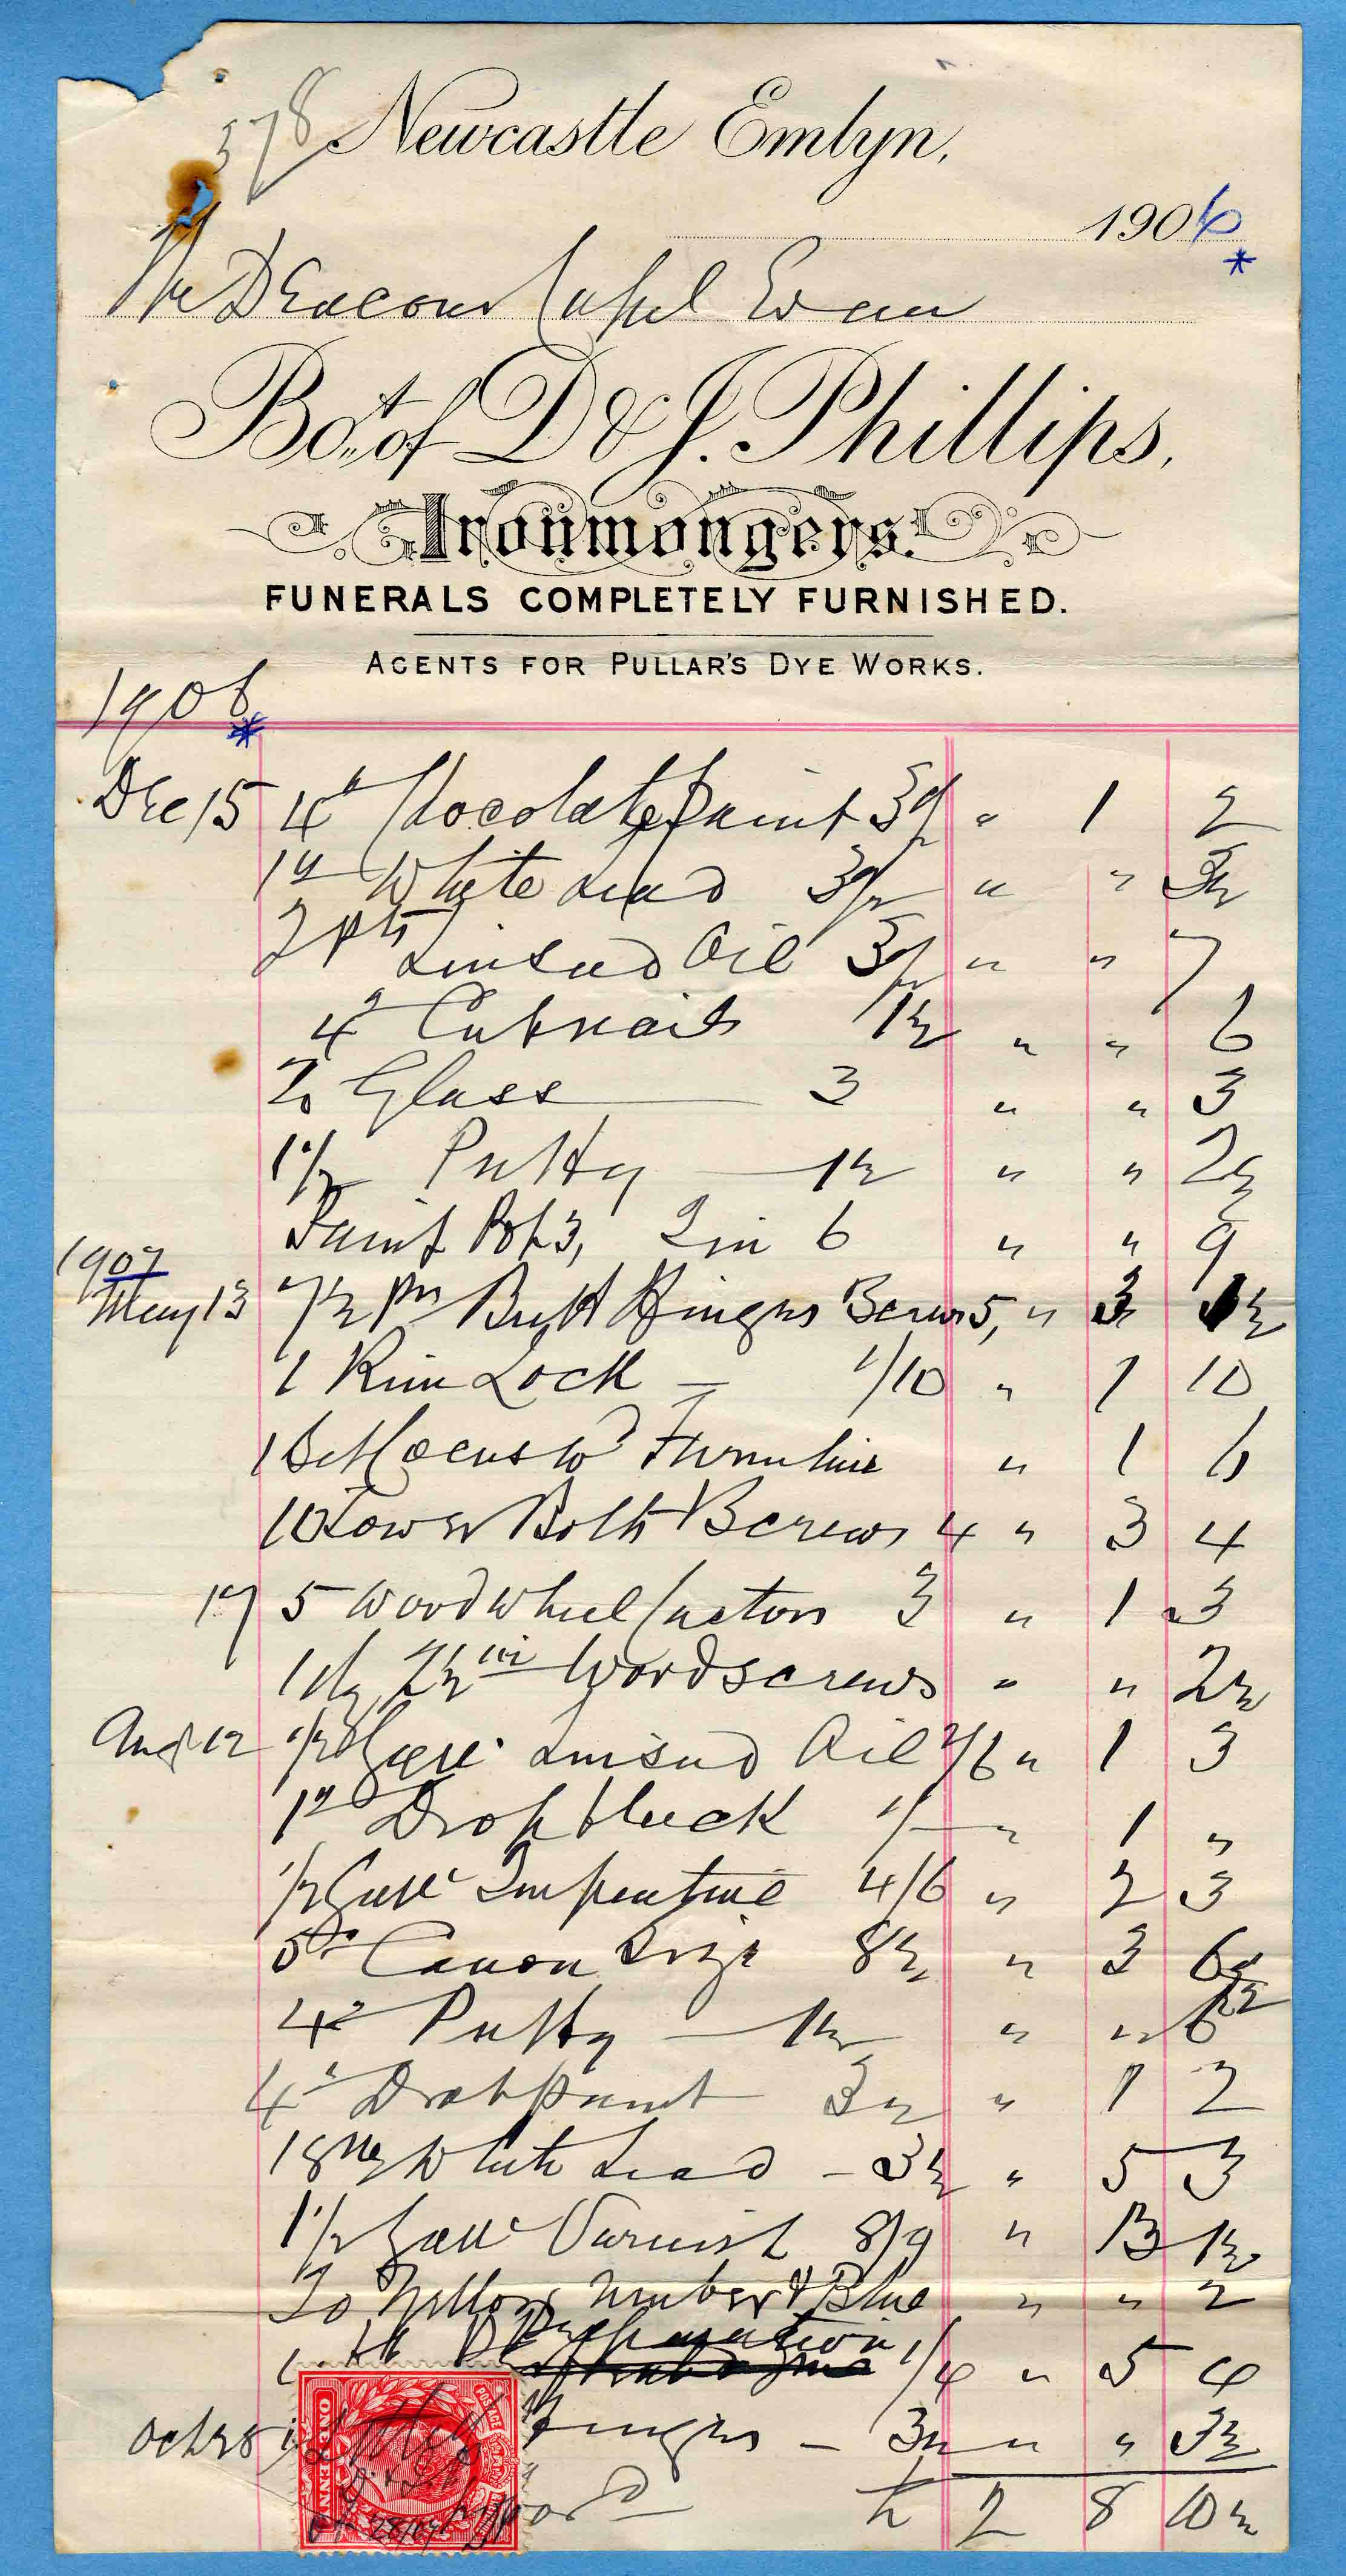 578
Newcastle Emlyn,
1906 *
Deacons Capel Evan
Bot. of D & J. Phillips,
Ironmongers.
FUNERALS COMPLETELY FURNISHED.
AGENTS FOR PULLAR'S DYE WORKS.
1906 *
Dec 15 4" Chocolate Paint 3½ " 1 2
1" White Lead 3½ " " 3½
2 pts Linseed Oil 3½ " " 7
4" Cutnails 1½ " " 6
To Glass 3 " " 3
1½ Putty 1½ " " 2½
Paint Pot 3, Tin 6 " " 9
1907
May 13 7½ prs Butt Hinges & Screws 5, " 3 1½
1 Rim Lock — 1/10 " 1 10
1 Set Locust Wd Furniture " 1 6
10 Tower Bolts & Screws 4 " 3 4
17 5 Wood wheel Castors 3 " 1 3
1 dz 2½ in Woodscrews " " 2½
Aug 12 ½ Gall Linseed Oil 2/6 " 1 3
1" Drop black 1/- " 1 "
½ Gall Turpentine 4/6 " 2 3
5" Canon Size 8½ " 3 6½
4" Putty — 1½ " " 6
4" Drab Paint 3½ " 1 2
18" White Lead — 3½ " 5 3
1½ Gall Varnish 8/9 " 13 1½
To Yellow Umber & Blue " " 2
Preparation 1/4 " 5 4
Oct 28 Hinges — 3½ " " 3½
POSTAGE
ONE PENNY
Settled
D & J
28/07
£ 2 8 10½